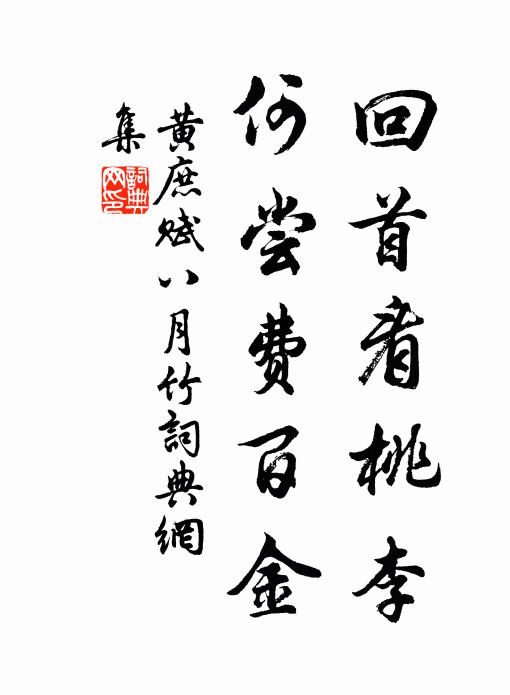 回首看桃李
何尝费百金
黄庶赋八月竹詞典網
集
詞典网印